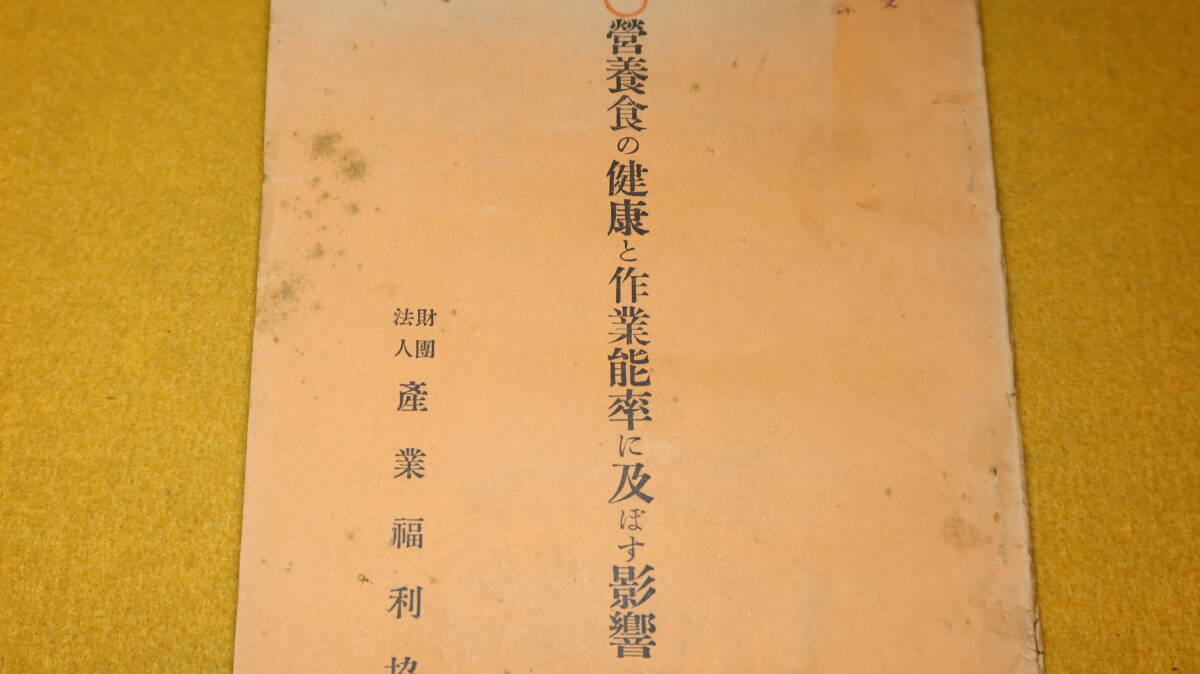 營養食の健康と作業能率に及ぼす影響
財團
法人
產業福利協